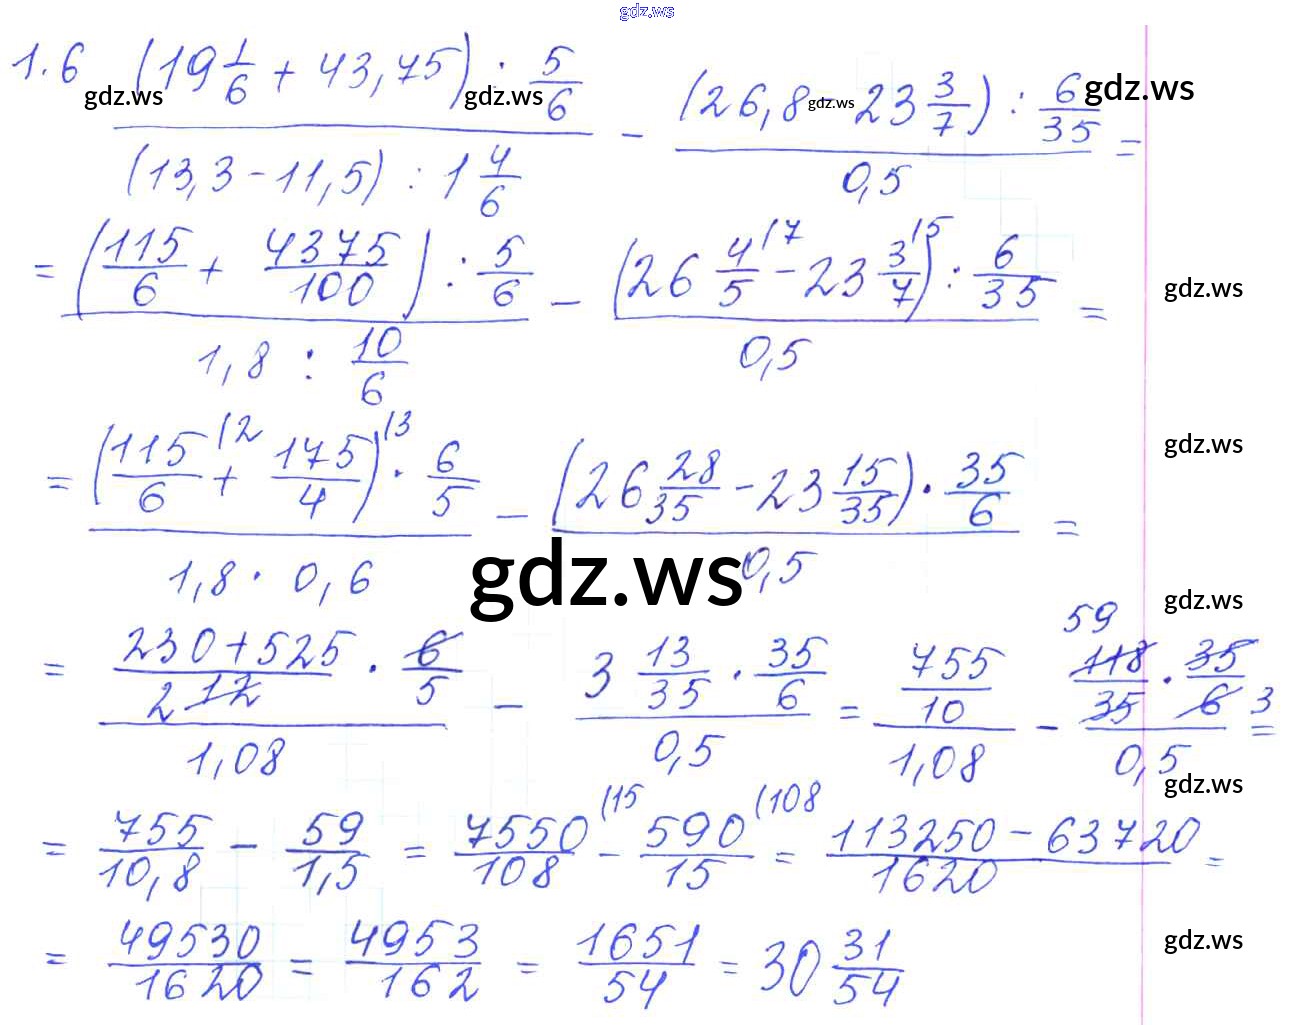 gdz.ws
1.6 ((19 1/6 + 43,75) : 5/6) / ((13,3 - 11,5) : 1 4/6) - ((26,8 - 23 3/7) : 6/35) / 0,5 =
gdz.ws gdz.ws gdz.ws gdz.ws
= ((115/6 + 4375/100) : 5/6) / (1,8 : 10/6) - ((26 4/5 (7 - 23 3/7 (5) : 6/35) / 0,5 =
gdz.ws
= ((115/6 (2 + 175/4 (3) · 6/5) / (1,8 · 0,6) - ((26 28/35 - 23 15/35) · 35/6) / 0,5 =
gdz.ws
gdz.ws
gdz.ws
= ((230+525)/12 2 · 6/5) / 1,08 - (3 13/35 · 35/6) / 0,5 = (755/10) / 1,08 - (118 59/35 · 35/6 3) / 0,5 =
gdz.ws
= 755/10,8 - 59/1,5 = 7550/108 (15 - 590/15 (108 = (113250 - 63720)/1620 =
gdz.ws
= 49530/1620 = 4953/162 = 1651/54 = 30 31/54